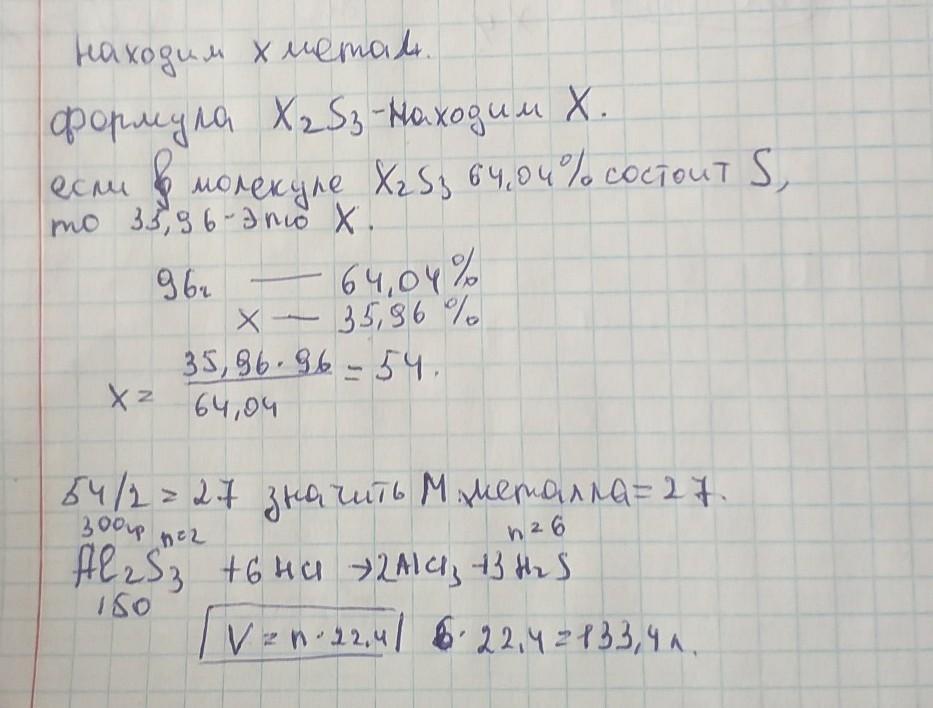 находим х метал.
формула X₂S₃-находим X.
если в молекуле X₂S₃ 64,04% состоит S,
то 35,96-это X.
96г — 64,04%
x — 35,96 %
x = 35,96 · 96 / 64,04 = 54.
54/2 = 27 значить M металла = 27.
300гр n=2 n=6
Al₂S₃ + 6 HCl → 2AlCl₃ + 3H₂S
150
V = n · 22,4 6 · 22,4 = 133,4 л.